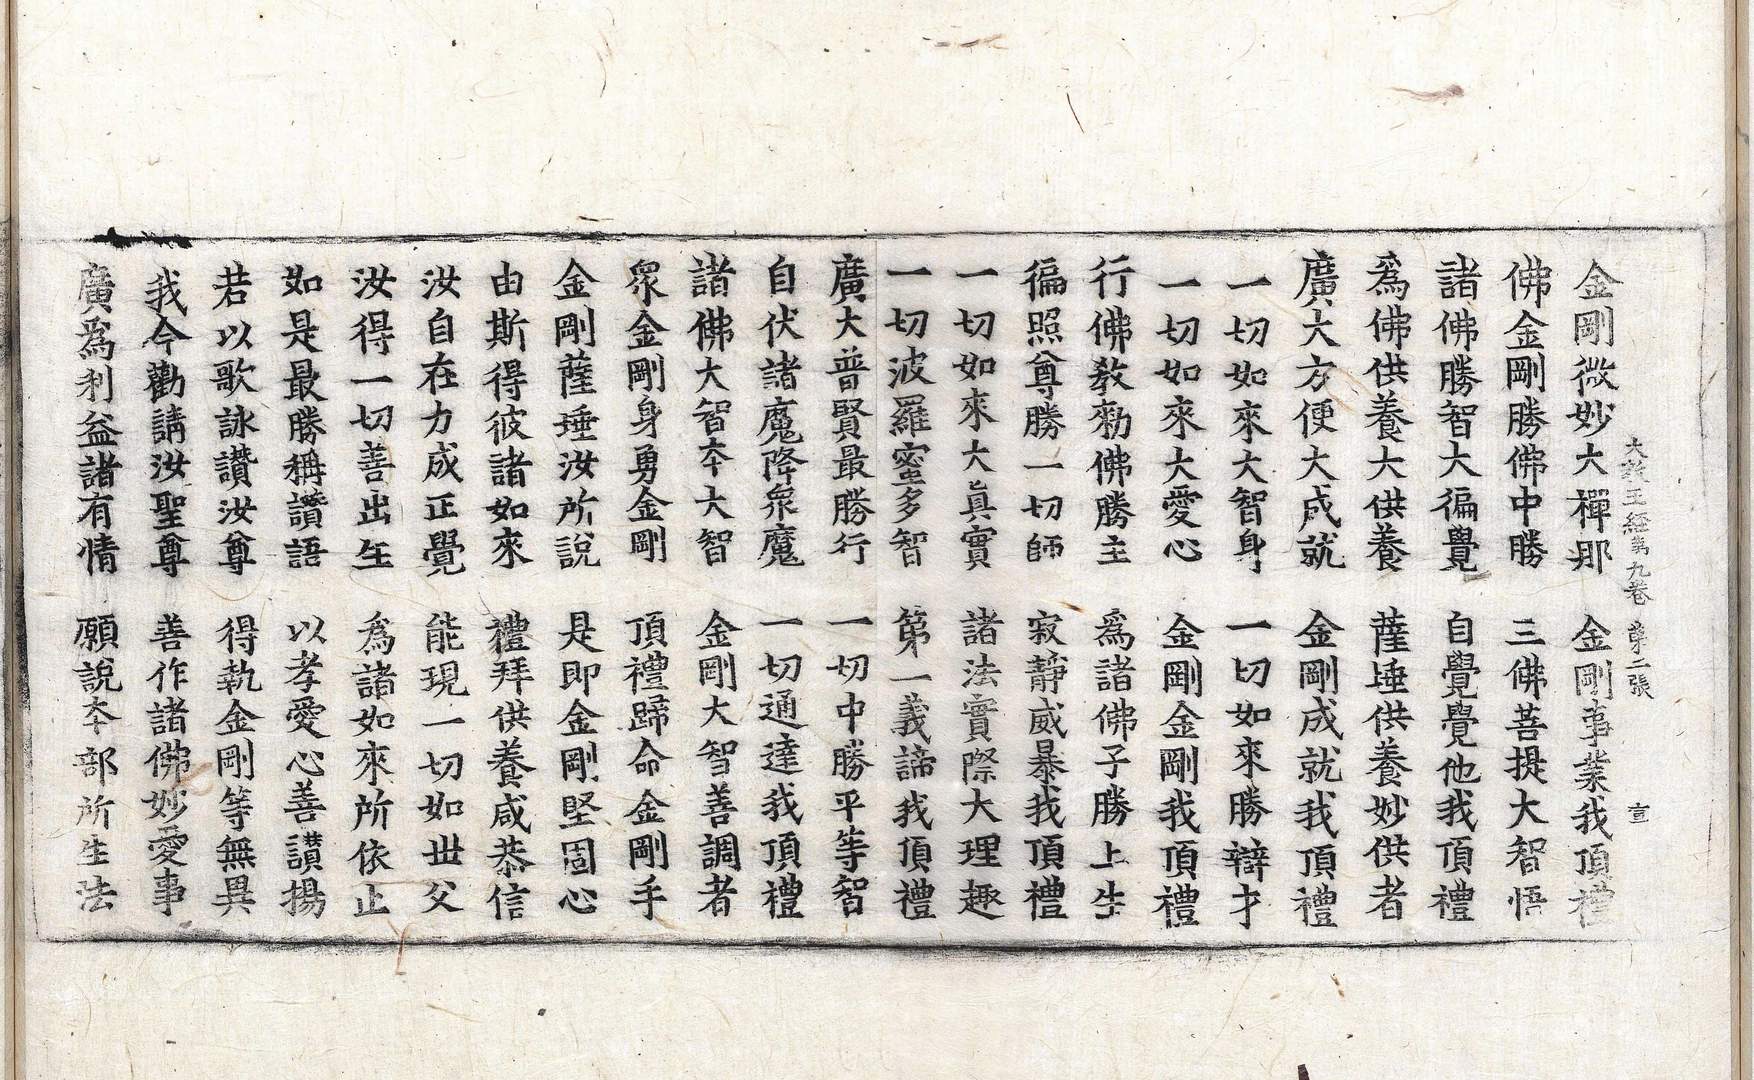 大敎王經苐九卷 苐二張 宣
金剛微妙大禪那 金剛事業我頂禮
佛金剛勝佛中勝 三佛菩提大智悟
諸佛勝智大徧覺 自覺覺他我頂禮
爲佛供養大供養 薩埵供養妙供者
廣大方便大成就 金剛成就我頂禮
一切如來大智身 一切如來勝辯才
一切如來大愛心 金剛金剛我頂禮
行佛敎勑佛勝主 爲諸佛子勝上生
徧照尊勝一切師 寂靜威暴我頂禮
一切如來大眞實 諸法實際大理趣
一切波羅蜜多智 第一義諦我頂禮
廣大普賢最勝行 一切中勝平等智
自伏諸魔降衆魔 一切通達我頂禮
諸佛大智夲大智 金剛大智善調者
衆金剛身勇金剛 頂禮歸命金剛手
金剛薩埵汝所說 是即金剛堅固心
由斯得彼諸如來 禮拜供養咸恭信
汝自在力成正覺 能現一切如世父
汝得一切善出生 爲諸如來所依止
如是最勝稱讚語 以孝愛心善讚揚
若以歌詠讚汝尊 得執金剛等無異
我今勸請汝聖尊 善作諸佛妙愛事
廣爲利益諸有情 願說夲部所生法